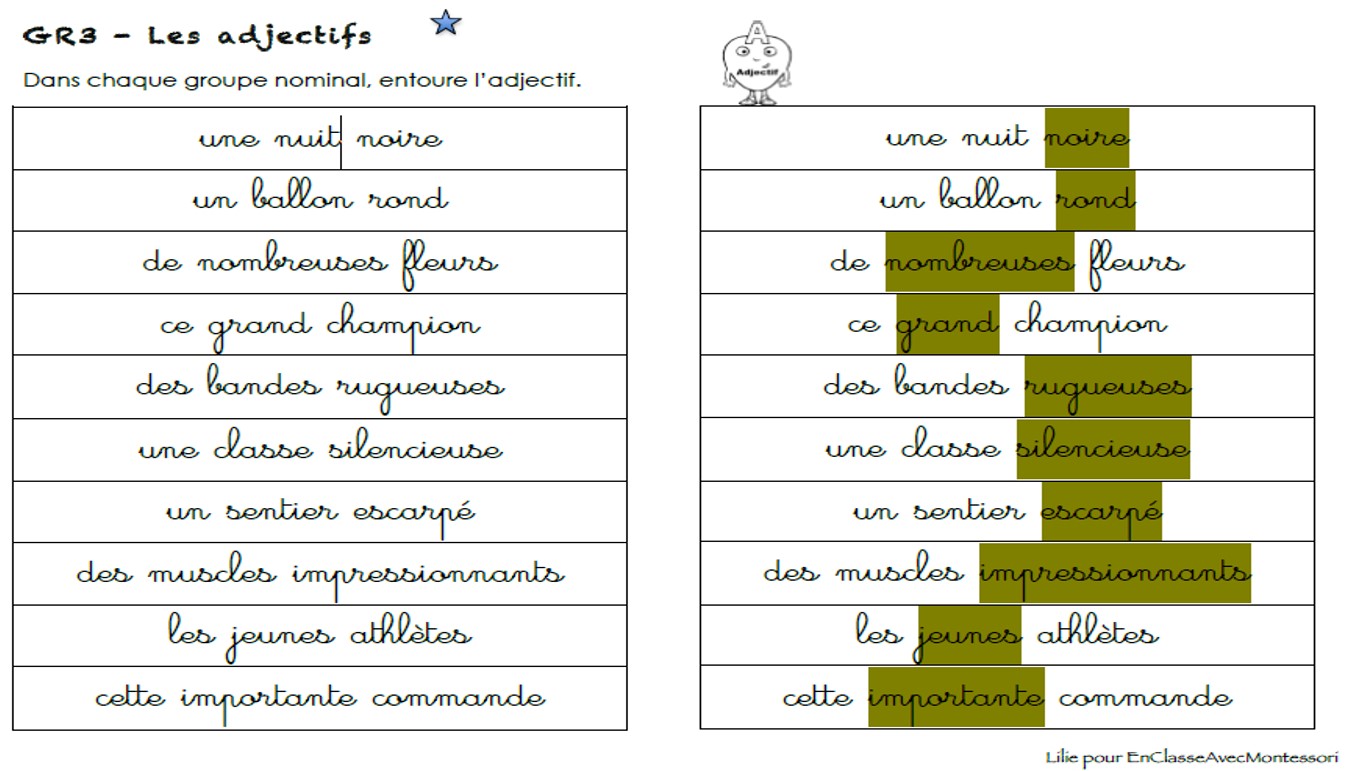 GR3 - Les adjectifs
Dans chaque groupe nominal, entoure l'adjectif.
une nuit noire
un ballon rond
de nombreuses fleurs
ce grand champion
des bandes rugueuses
une classe silencieuse
un sentier escarpé
des muscles impressionnants
les jeunes athlètes
cette importante commande
A
Adjectif
une nuit noire
un ballon rond
de nombreuses fleurs
ce grand champion
des bandes rugueuses
une classe silencieuse
un sentier escarpé
des muscles impressionnants
les jeunes athlètes
cette importante commande
Lilie pour EnClasseAvecMontessori